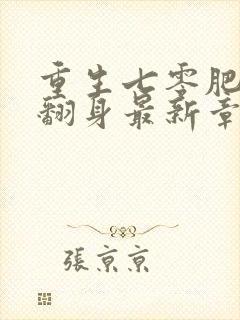 重生七零肥
翻身最新章
張京京